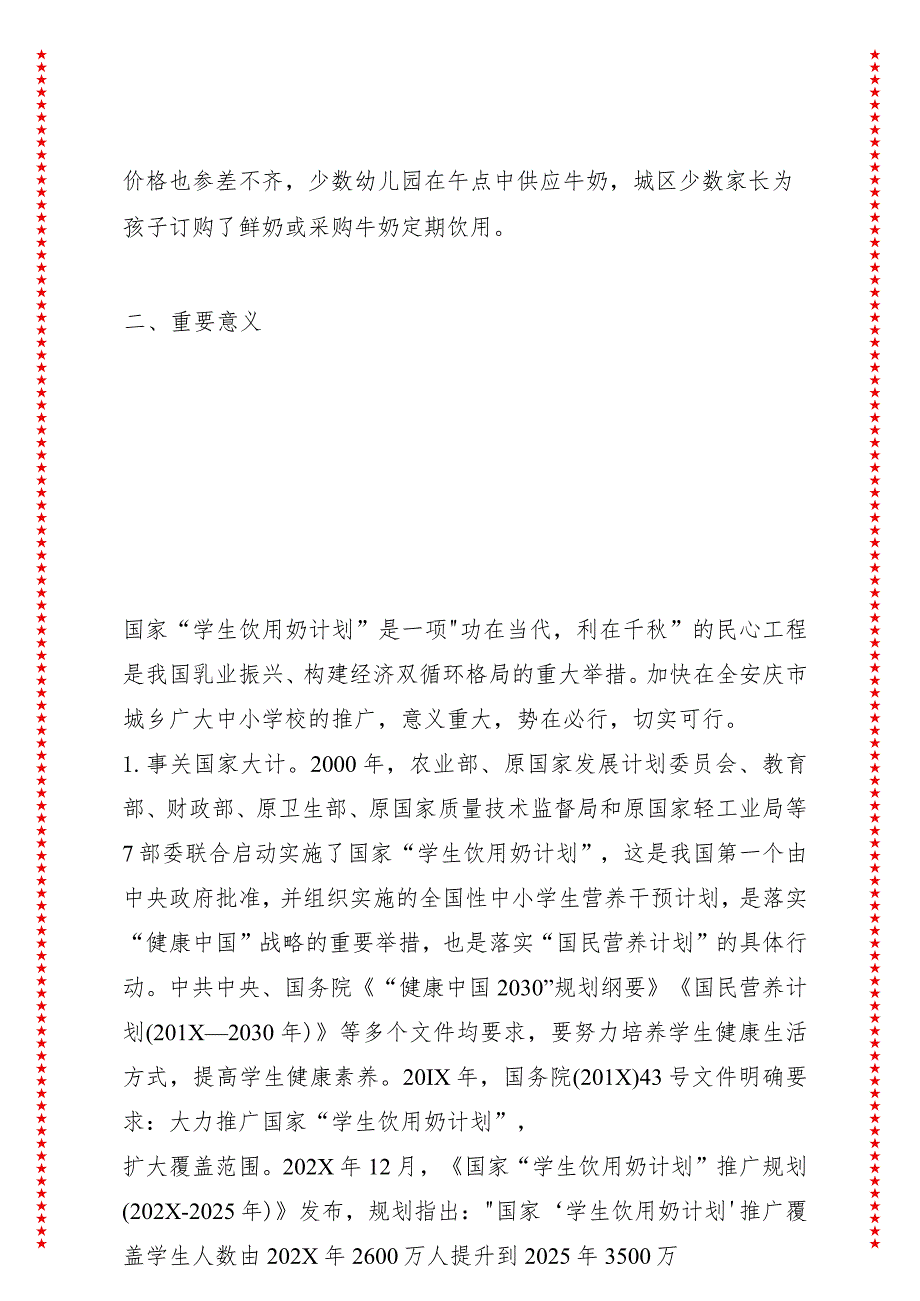 价格也参差不齐，少数幼儿园在午点中供应牛奶，城区少数家长为
孩子订购了鲜奶或采购牛奶定期饮用。
二、重要意义
国家“学生饮用奶计划”是一项"功在当代，利在千秋”的民心工程
是我国乳业振兴、构建经济双循环格局的重大举措。加快在全安庆市
城乡广大中小学校的推广，意义重大，势在必行，切实可行。
1. 事关国家大计。2000 年，农业部、原国家发展计划委员会、教育
部、财政部、原卫生部、原国家质量技术监督局和原国家轻工业局等
7 部委联合启动实施了国家“学生饮用奶计划”，这是我国第一个由
中央政府批准，并组织实施的全国性中小学生营养干预计划，是落实
“健康中国”战略的重要举措，也是落实“国民营养计划”的具体行
动。中共中央、国务院《“健康中国 2030”规划纲要》《国民营养计
划(201X—2030 年)》等多个文件均要求，要努力培养学生健康生活
方式，提高学生健康素养。20IX 年，国务院(201X)43 号文件明确要
求：大力推广国家“学生饮用奶计划”，
扩大覆盖范围。202X 年 12 月，《国家“学生饮用奶计划”推广规划
(202X-2025 年)》发布，规划指出："国家‘学生饮用奶计划'推广覆
盖学生人数由 202X 年 2600 万人提升到 2025 年 3500 万